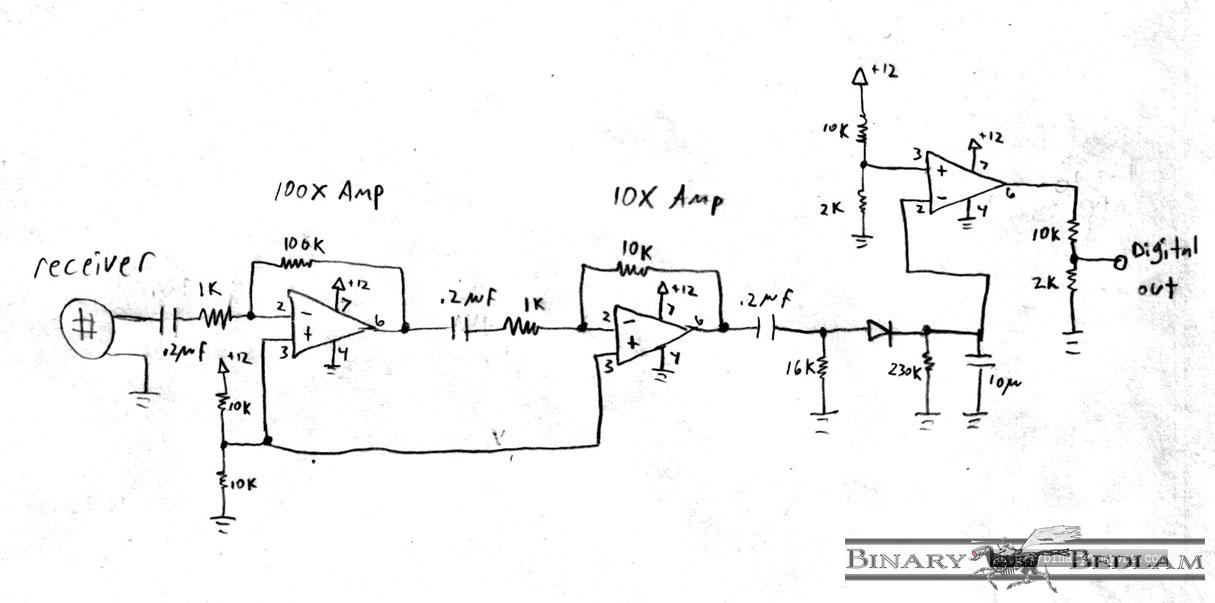 +12
10K
2K
3
+
-
2
+12
7
6
4
10K
2K
Digital
out
100X Amp
10X Amp
receiver
.2µF
1K
100K
2
-
+
3
+12
7
6
4
+12
10K
10K
.2µF
1K
10K
2
-
+
3
+12
7
6
4
.2µF
16K
230K
10µ
BINARY BEDLAM